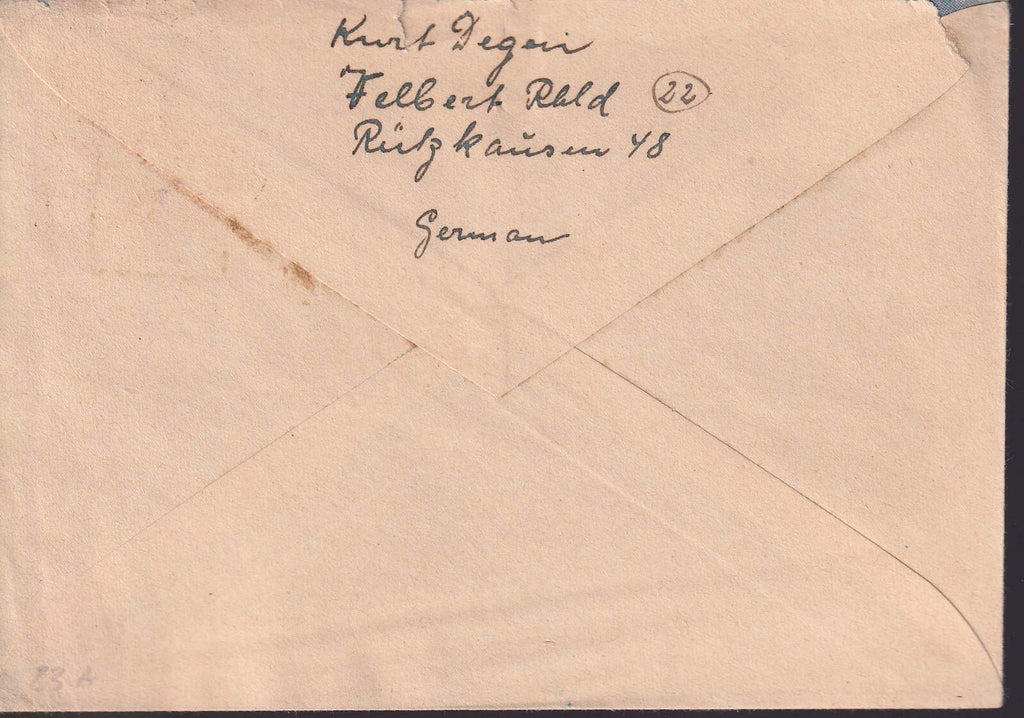 Kurt Degen
Velbert Rhld (22)
Rützkausen 48
German
23 A